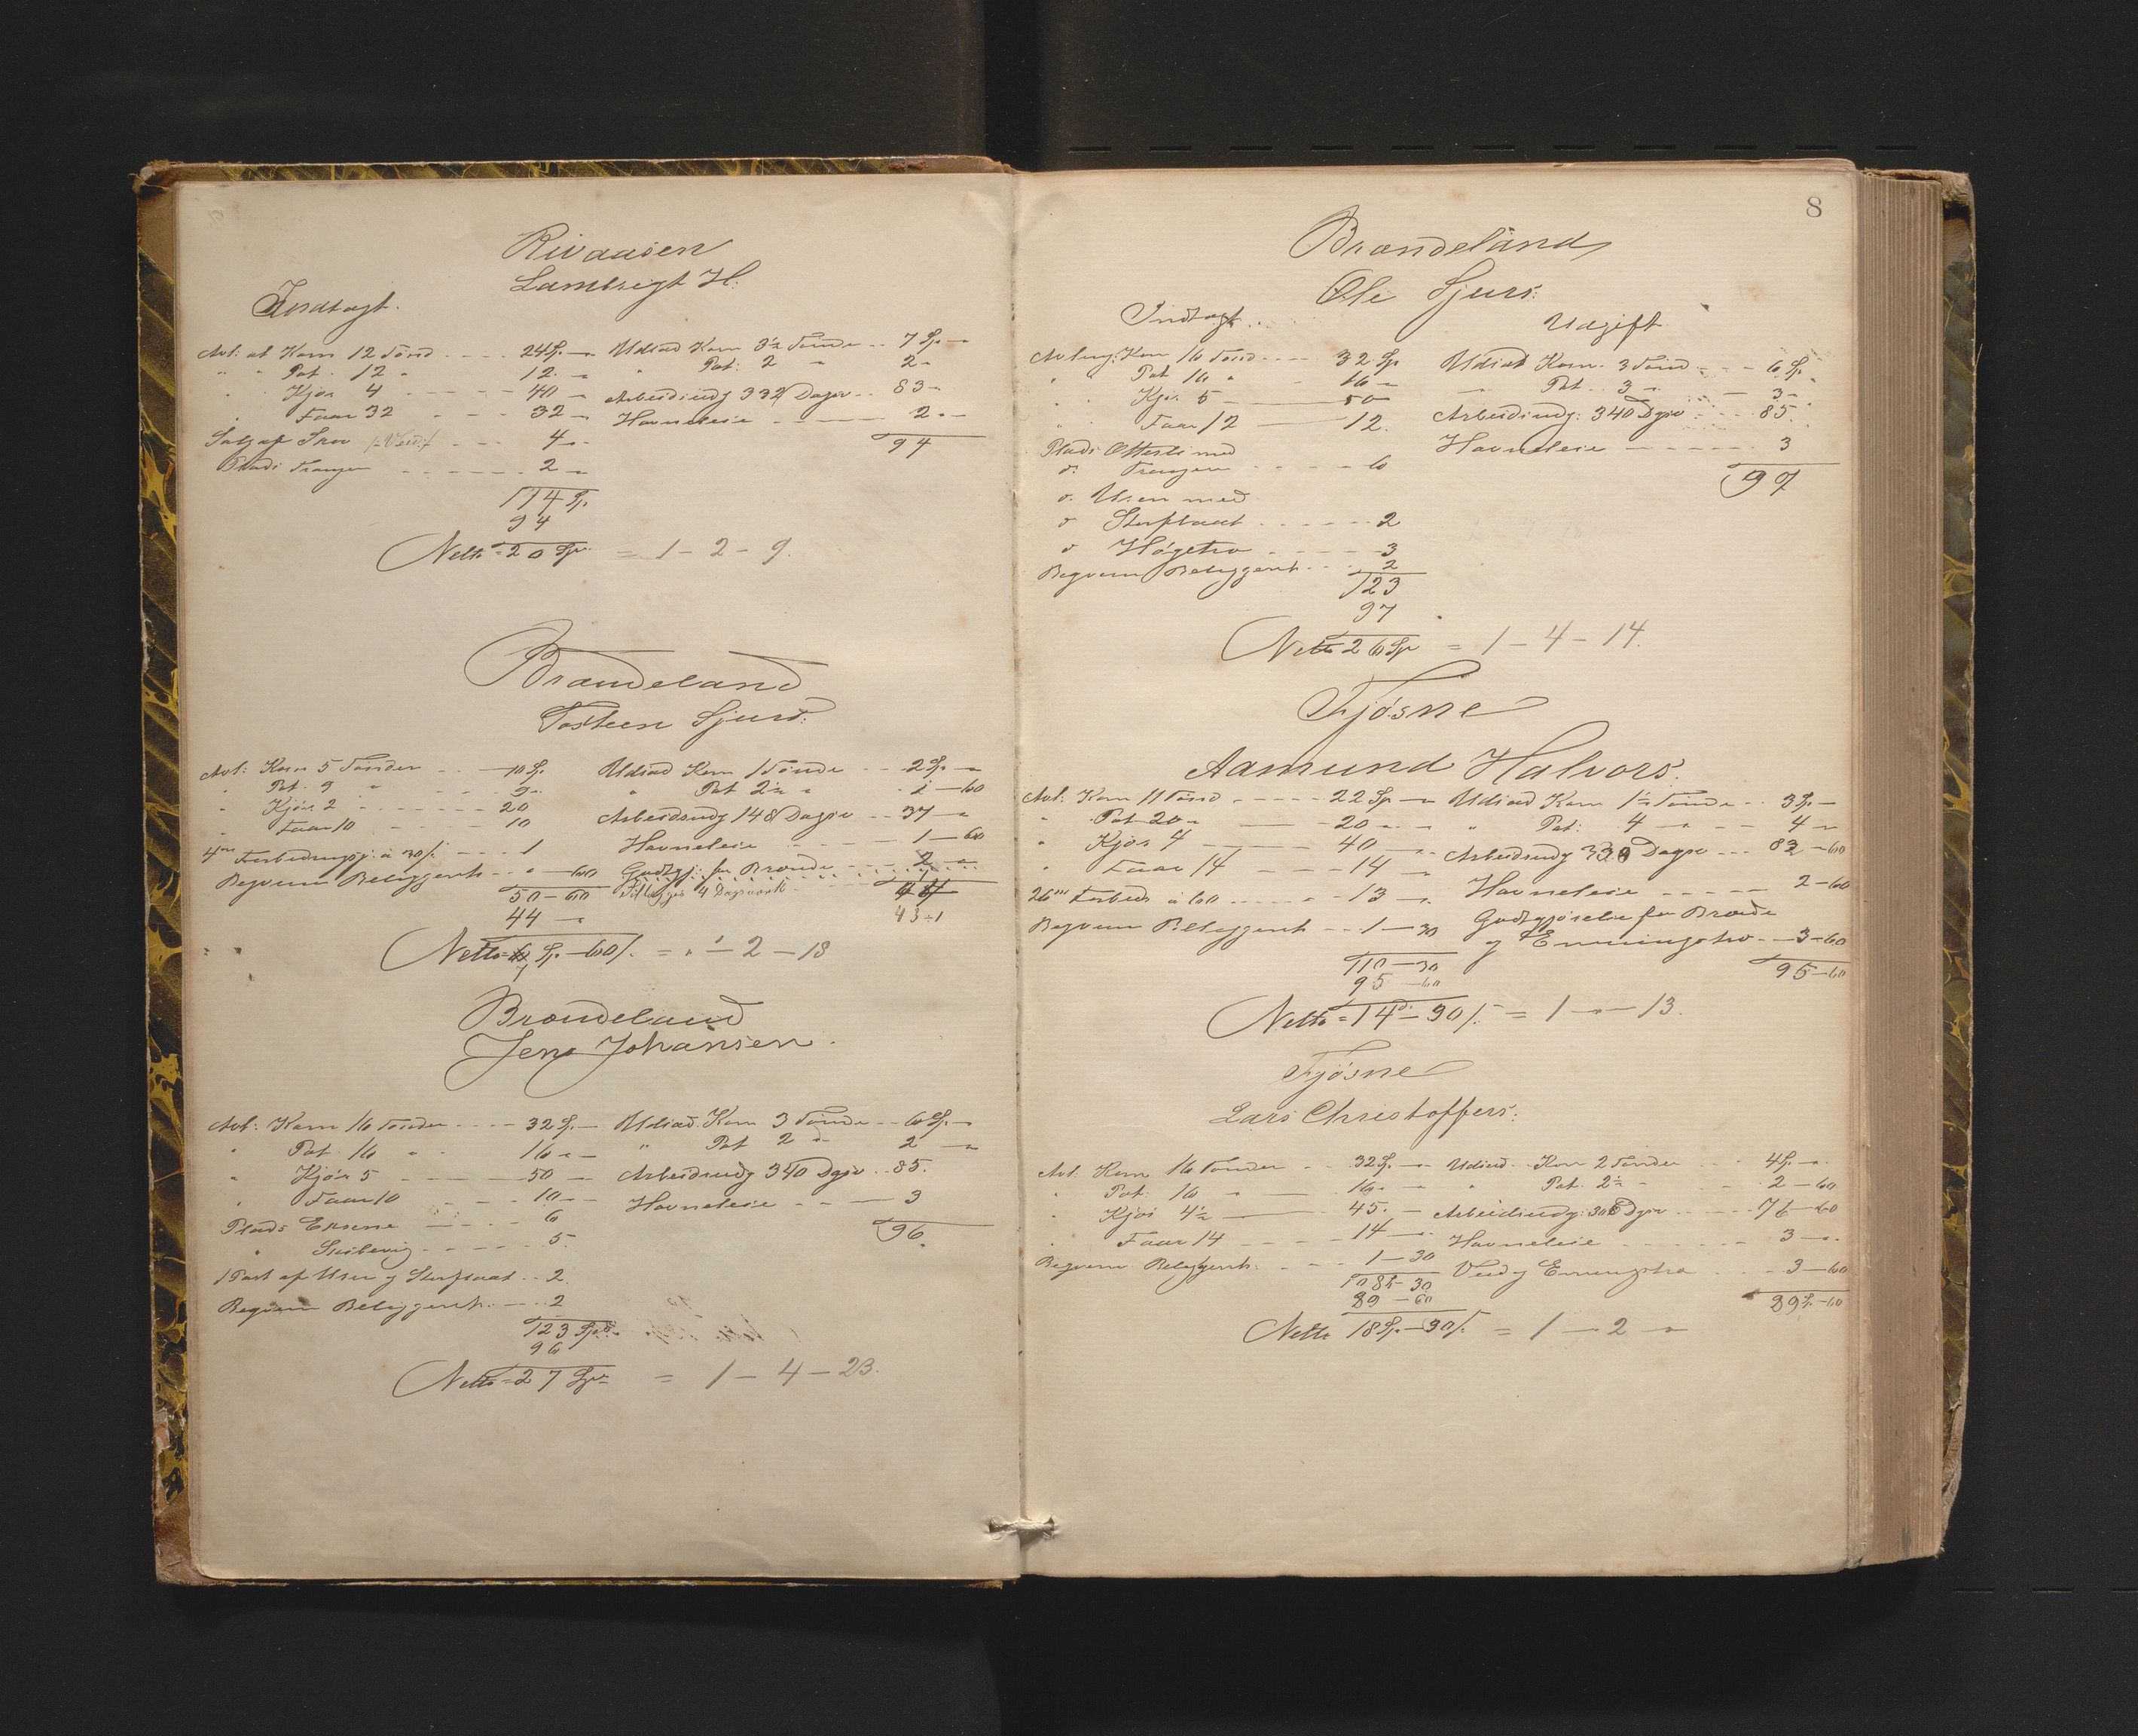 Rivaasen
Lambregt H:
Indtægt.
Avl: at Korn 12 Tønd - - - - 24 Sp. — Udsæd Korn 3½ Tønde - - 7 Sp. —
" " Pot. 12 " 12. — " Pot: 2 " 2 —
" Kjør 4 - - - - 40 — Arbeidsudg 332 Dager - - 83 —
" Faar 32 - - - 32 — Havneleie - - - - 2 - —
Salg af Skov - - - 4 — 94
Plads Trangen - - - - - - 2 —
114 Sp.
94
Netto = 20 Sp. = 1 — 2 — 9.
Brændeland
Tosteen Sjurs:
Avl: Korn 5 Tønder - - — 10 Sp. Udsæd Korn 1 Tønde - - 2 Sp. —
" Pot. 9 " - - - 9 - " Pot 2½ " - 2 — 60
" Kjør 2 - - - - - - 20 Arbeidsudg 148 Dager - - 37 —
" Faar 10 - - - - 10 Havneleie - - - - 1 — 60
4 m Forbedringsj. a 30 /. - - - 1 Godtgj. for Brænde - - - - 2 —
Beqvem Beliggenh - - " — 60 4 Dagsverk
50 — 60 44
44 — 43 ÷ 1
Netto = Sp. — 60 /. = " — 2 — 18
Brændeland
Jens Johansen.
Avl: Korn 16 Tønder - - - - 32 Sp. — Udsæd. Korn 3 Tønde - - 6 Sp. —
" Pot 16 " - 16 - — " Pot 2 " 2 —
" Kjør 5 - - - - 50 — Arbeidsudg 340 Dgsv - - 85.
" Faar 10 - - - 10 - — Havneleie - - — 3
Plads Eksene - - - - 6 96.
" - - - - 5.
1 Part af Usen og Storflaat - - 2.
Beqvem Beliggenh. - — 2
123 Spd.
96
Netto = 27 Spd = 1 — 4 — 23.
8
Brændeland
Ole Sjurs:
Indtægt. Udgift
Avling: Korn 16 Tønd - - - - 32 Sp Udsæd Korn. 3 Tønd - - - 6 Sp.
" Pot 16 " - 16 — " Pot. 3 " — 3 —
" Kjør 5 — 50 — Arbeidsudg: 340 Dgsv - - - 85.
" Faar 12 — 12. Havneleie - - - - - - 3
Plads Ottersli med 97
do Trangen - - - - - 6
do Usen med
do Storflaat - - - - - 2
do Høgetro - - - - - 3
Beqvem Beliggenh - - - 2
123
97
Netto 26 Sp = 1 — 4 — 14.
Fjøsne
Aamund Halvors.
Avl: Korn 11 Tønd - - - - - 22 Sp — Udsæd Korn 1½ Tønde - - 3 Sp —
" Pot 20 " — 20 - — " Pot: 4 — 4 —
" Kjør 4 — 40 — Arbeidsudg 330 Dager - - - 82 — 60
" Faar 14 - - - - 14 — Havneleie - - - - - 2 — 60
26 m Forbeds a 60 - - - - - 13 — Godtgjørelse for Brænde
Beqvem Beliggenh - - 1 — 30 og Enningstro - - 3 — 60
110 — 30 95 — 60
95 — 60
Netto = 14 Sp — 90 /. = 1 — " — 13.
Fjøsne
Lars Christoffers:
Avl. Korn 16 Tønder - - 32 Sp. — Udsæd - Korn 2 Tønder - - - 4 Sp. —
" Pot: 16 " — 16 - — " Pot. 2½ " - - 2 — 60
" Kjør 4½ — 45. — Arbeidsudg: 306 Dgsv - - - - - 76 — 60
" Faar 14 - - - - 14 — Havneleie - - - - - - 3 —
Beqvem Beliggenh. - - - - 1 — 30 Ved og Enningstro - - - 3 — 60
108 Sp — 30 89 Sp. — 60
89 — 60
Netto 18 Sp. — 90 /. = 1 — 2 — "